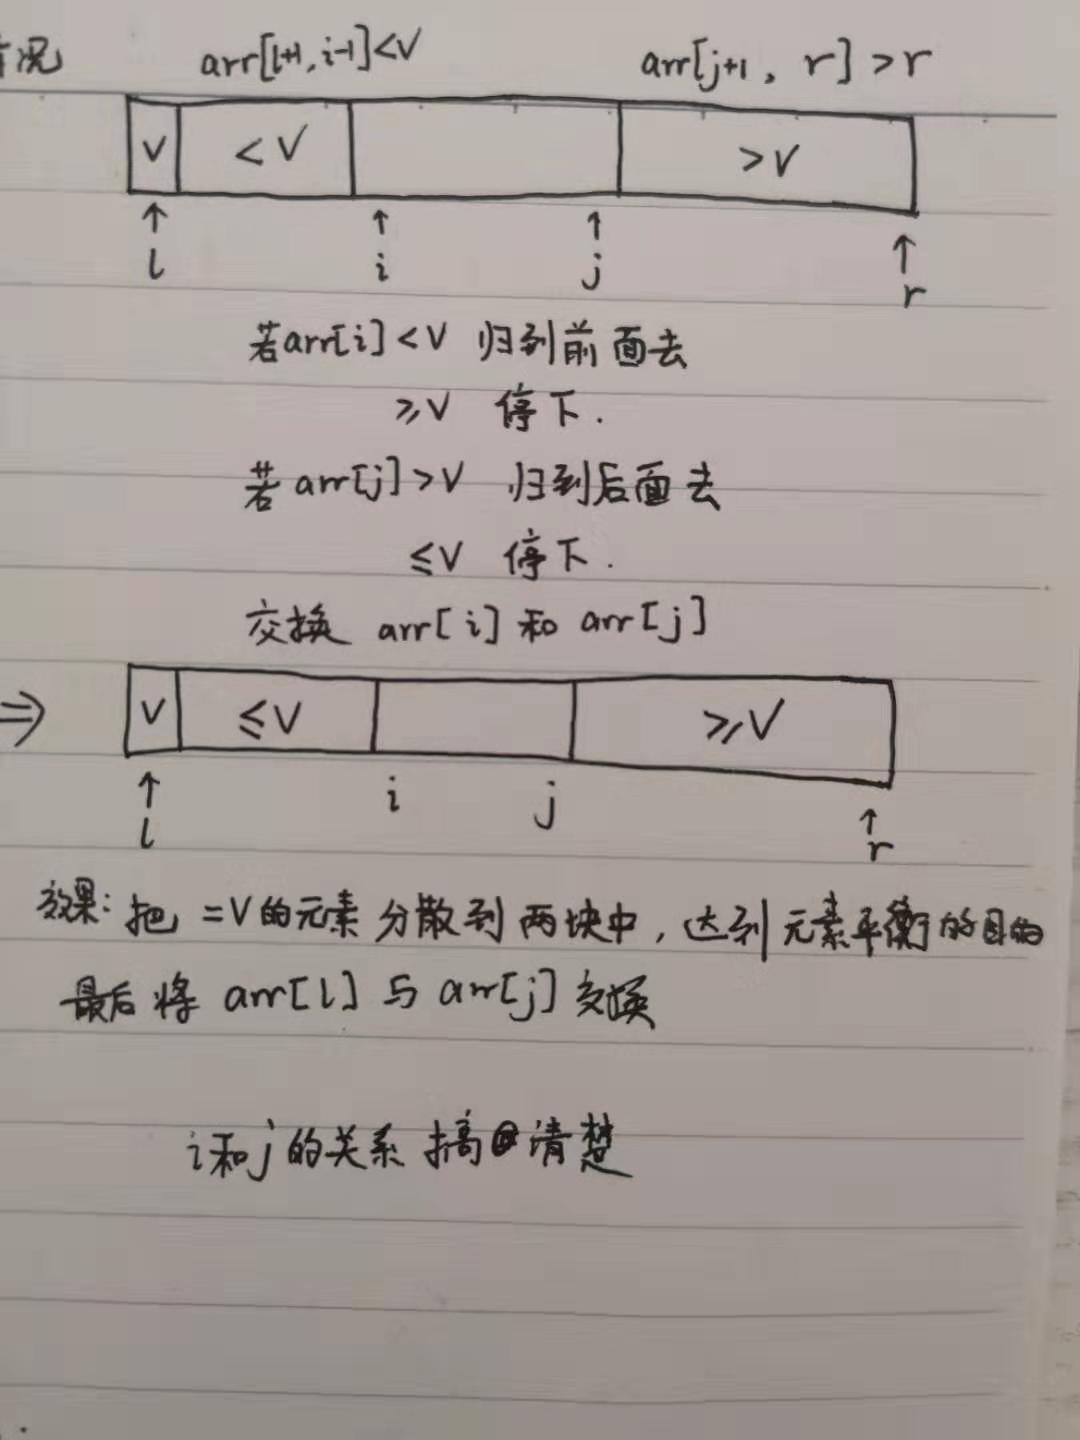 情况 arr[l+1, i-1]<V arr[j+1, r]>r
V <V >V
l i j r
若arr[i]<V 归到前面去
≥V 停下.
若arr[j]>V 归到后面去
≤V 停下.
交换 arr[i] 和 arr[j]
⇒ V ≤V ≥V
l i j r
效果: 把 =V的元素分散到两块中, 达到元素平衡的目的
最后将 arr[l] 与 arr[j] 交换
i和j的关系搞清楚